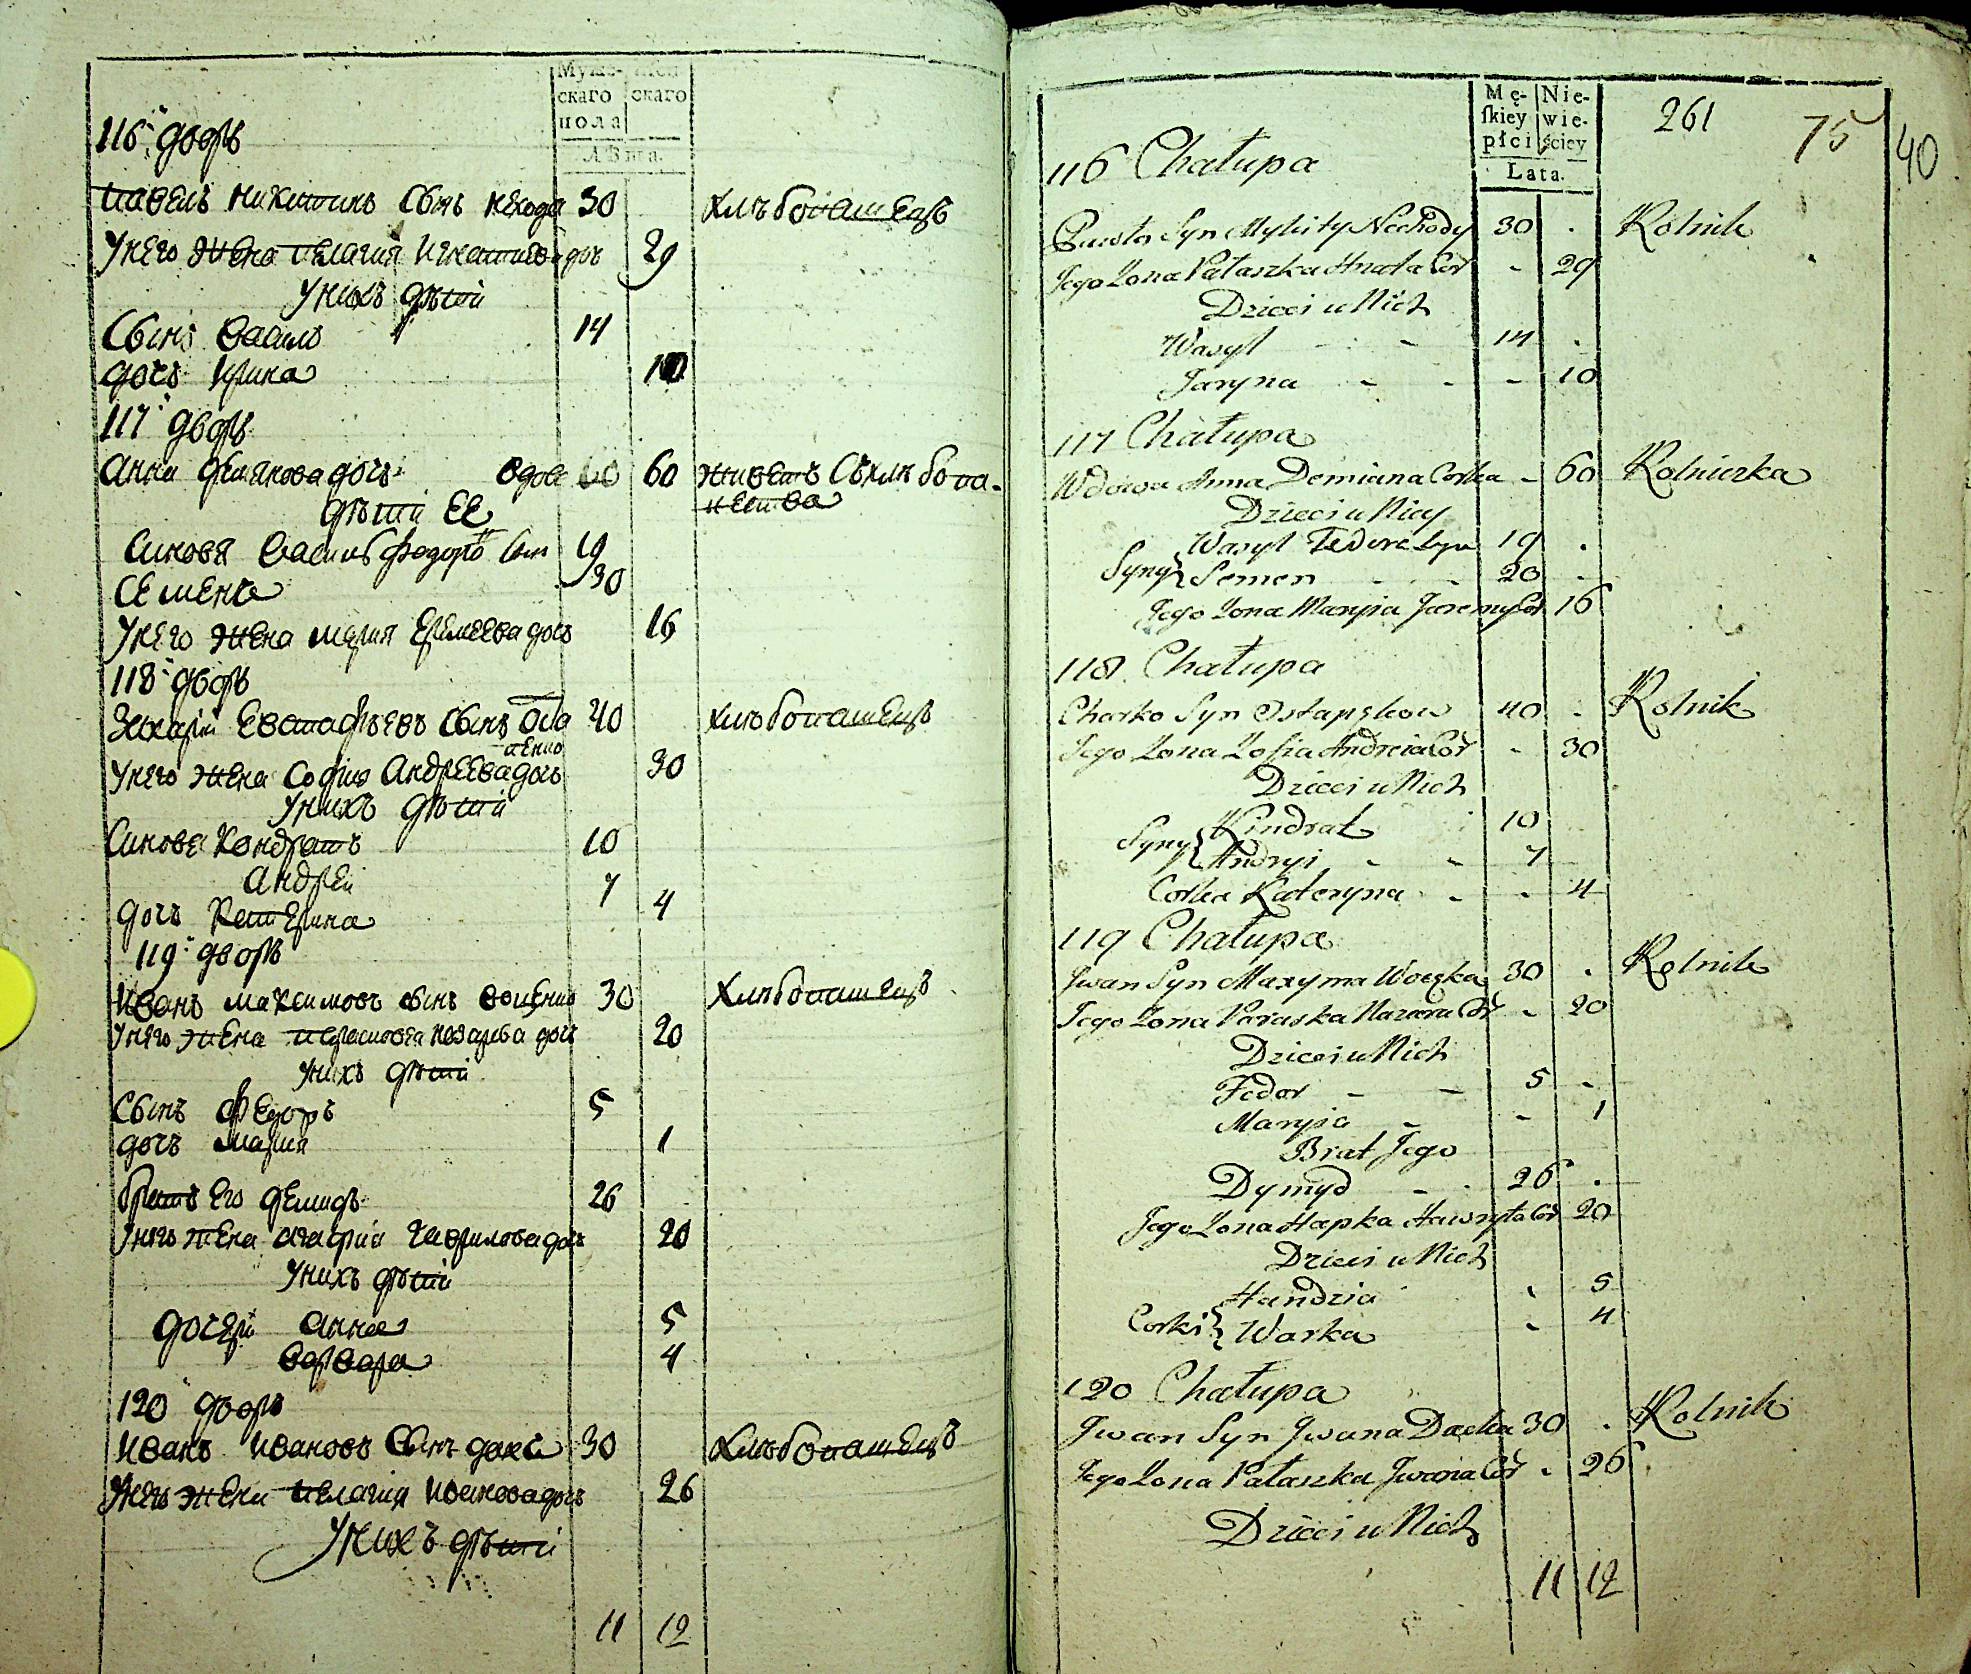 Муже- Жен
скаго скаго
пола
Лѣта.
116й дворъ
Павелъ Никитинъ сынъ нехода 30 хлѣбопашецъ
У него жена Пелагия Игнатова дочь 29
У нихъ дѣти
Сынъ Василь 14
дочь Ирина 10
117й дворъ
Анна Демянова дочь вдова 60 живетъ съ хлѣбопа-
шества
дѣти Ее
Синовя Василь Федоровъ сын 19
Семенъ 30
У него жена Мария Еремеева дочь 16
118й дворъ
Захарій Евстафьевъ сынъ Оста 40 хлѣбопашецъ
пенко
У него жена София Андреева дочь 30
У нихъ дѣти
Синовя Кондратъ 10
Андрей 7
дочь Катерина 4
119й дворъ
Иванъ Максимовъ сынъ воценко 30 Хлѣбопашецъ
У него жена Парасковея Назарова дочь 20
У нихъ дѣти
Сынъ Федоръ 5
дочь Мария 1
братъ Его Демидъ 26
У него жена Агафия Гаврилова дочь 20
У нихъ дѣти
дочери Анна 5
Варвара 4
120й дворъ
Иванъ Ивановъ Сынъ 30 Хлѣбопашецъ
У него жена Пелагия Иванова дочь 26
У нихъ дѣти
11 12
Mę- Nie-
skiey wie-
płci ściey
Lata.
261 75 40
116 Chałupa
Pawło Syn Mykity Nechody 30 . Rolnik
Jego Żona Pałaszka Hnata Cor - 29
Dzieci u Nich
Wasyl - - 14 .
Jaryna - - - 10
117 Chałupa
Wdowa Anna Demiana Corka - 60 Rolniczka
Dzieci u Niey
Wasyl Fedora Syn 19 .
Syny Semen - - 20 .
Jego Żona Maryia Jaremy Cor 16
118 Chałupa
Charko Syn Ostapskow 40 . Rolnik
Jego Żona Zofia Andreia Cor - 30
Dzieci u Nich
Syny Kindrat 10
Andryi - - 7
Corka Kateryna - - 4
119 Chałupa
Jwan Syn Maxyma Woczka 30 . Rolnik
Jego Żona Paraska Nazara Cor - 20
Dzieci u Nich
Fedor - - 5 -
Maryia - - 1
Brat Jego
Dymyd - - 26 .
Jego Żona Hapka Hawryła Cor 20
Dzieci u Nich
Handzia - 5
Corki Warka - 4
120 Chałupa
Jwan Syn Jwana Dacka 30 . Rolnik
Jego Żona Pałaszka Jwana Cor - 26
Dzieci u Nich
11 12